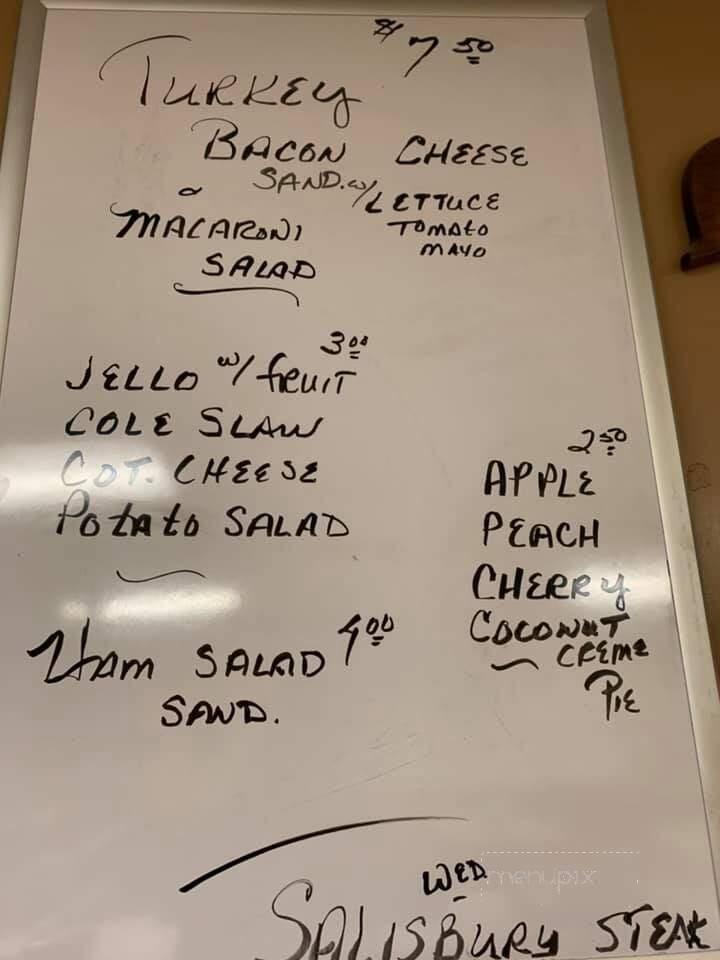 $7 50
TURKEY
BACON CHEESE
SAND. w/ LETTUCE
TOMATO
MAYO
&
MACARONI
SALAD
3 00
JELLO w/ fRUIT
COLE SLAW
COT. CHEESE
POtAto SALAD
2 50
APPLE
PEACH
CHERRY
COCONUT
CREME
PIE
HAM SALAD 4 00
SAND.
WED
menupix
SALISBURY STEAK